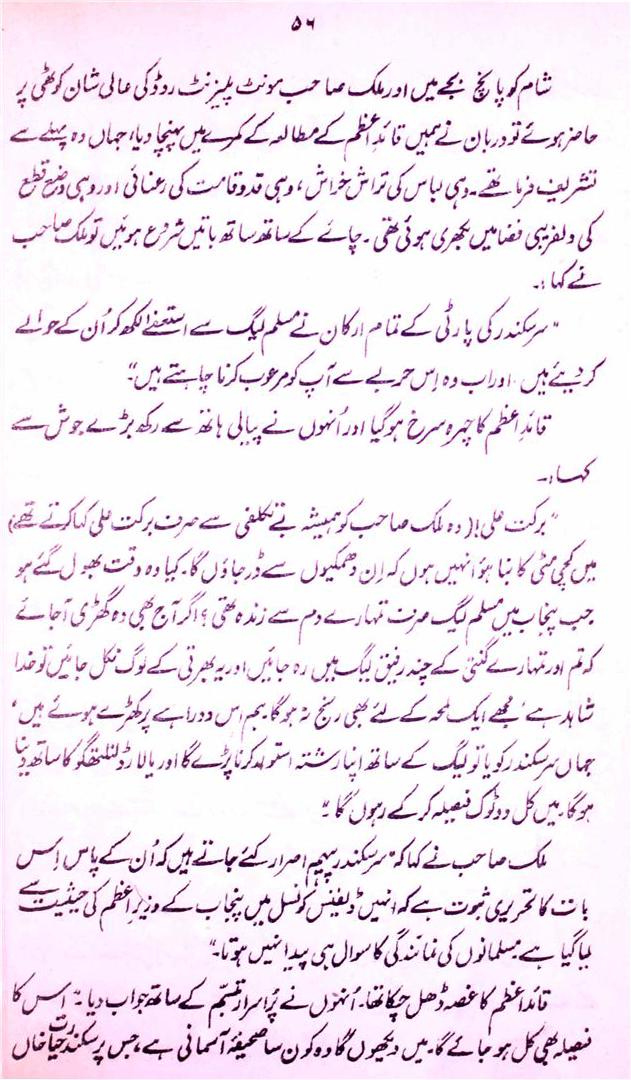 ۵۶
شام کو پانچ بجے میں اور ملک صاحب مونٹ پلیزنٹ روڈ کی عالی شان کوٹھی پر
حاضر ہوئے تو دربان نے ہمیں قائدِ اعظم کے مطالعہ کے کمرے میں پہنچا دیا، جہاں وہ پہلے سے
تشریف فرما تھے۔ وہی لباس کی تراش خراش، وہی قد و قامت کی رعنائی اور وہی وضع قطع
کی دلفریبی فضا میں بکھری ہوئی تھی۔ چائے کے ساتھ ساتھ باتیں شروع ہوئیں تو ملک صاحب
نے کہا:۔
"سر سکندر کی پارٹی کے تمام ارکان نے مسلم لیگ سے استعفے لکھ کر اُن کے حوالے
کر دیئے ہیں۔ اور اب وہ اِس حربے سے آپ کو مرعوب کرنا چاہتے ہیں۔"
قائدِ اعظم کا چہرہ سرخ ہو گیا اور اُنہوں نے پیالی ہاتھ سے رکھ بڑے جوش سے
کہا:۔
"برکت علی! (وہ ملک صاحب کو ہمیشہ بے تکلفی سے صرف برکت علی کہا کرتے تھے)
میں کچی مٹی کا بنا ہؤا نہیں ہوں کہ اِن دھمکیوں سے ڈر جاؤں گا۔ کیا وہ وقت بھول گئے ہو
جب پنجاب میں مسلم لیگ صرف تمہارے دم سے زندہ تھی؟ اگر آج بھی وہ گھڑی آجائے
کہ تم اور تمہارے گنتی کے چند رفیق لیگ میں رہ جائیں اور یہ بھرتی کے لوگ نکل جائیں تو خدا
شاہد ہے، مجھے ایک لمحہ کے لئے بھی رنج نہ ہوگا۔ ہم اس دوراہے پر کھڑے ہوئے ہیں،
جہاں سر سکندر کو یا تو لیگ کے ساتھ اپنا رشتہ استوار کرنا پڑے گا اور یا لارڈ لنلتھگو کا ساتھ دینا
ہوگا۔ میں کل دو ٹوک فیصلہ کر کے رہوں گا۔"
ملک صاحب نے کہا کہ "سر سکندر پیہم اصرار کئے جاتے ہیں کہ اُن کے پاس اِس
بات کا تحریری ثبوت ہے کہ انہیں ڈیفنس کونسل میں پنجاب کے وزیرِ اعظم کی حیثیت سے
لیا گیا ہے۔ مسلمانوں کی نمائندگی کا سوال ہی پیدا نہیں ہوتا۔"
قائدِ اعظم کا غصہ ڈھل چکا تھا۔ اُنہوں نے پُراسرار تبسّم کے ساتھ جواب دیا۔ "اس کا
فیصلہ بھی کل ہو جائے گا۔ میں دیکھوں گا وہ کون سا صحیفۂ آسمانی ہے، جس پر سکندر حیات خاں